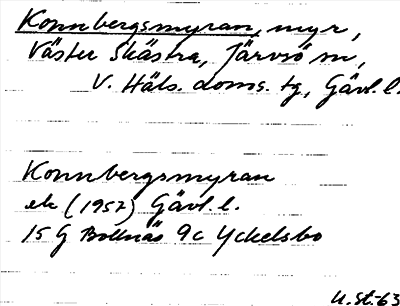 Konnbergsmyran, myr,
Väster Skästra, Järvsö sn,
V. Häls. doms. tg, Gävl. l.
Konnbergsmyran
ek (1957) Gävl. l.
15 G Bollnäs 9c Yckelsbo
U. St.-63